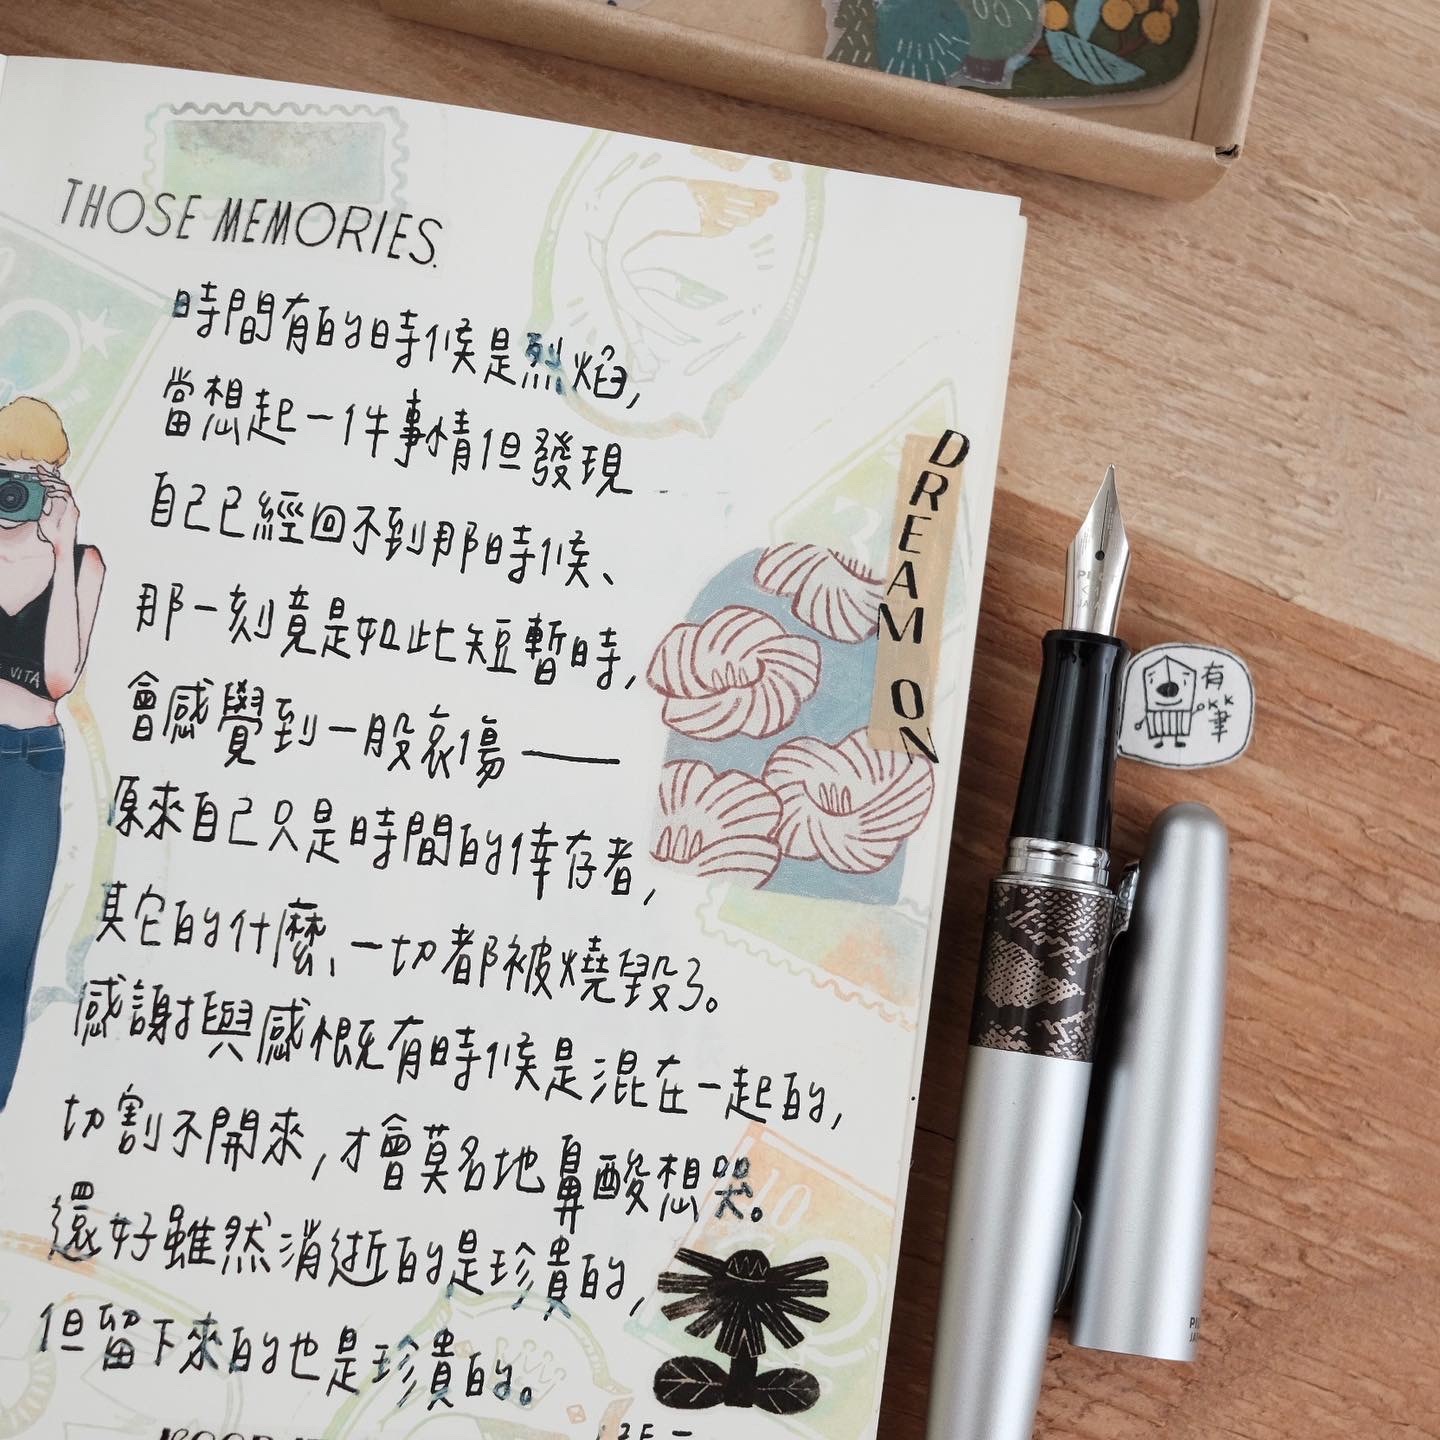 THOSE MEMORIES.
時間有的時候是烈焰，
當想起一件事情但發現
自己已經回不到那時候、
那一刻竟是如此短暫時，
會感覺到一股哀傷——
原來自己只是時間的倖存者，
其它的什麼、一切都被燒毀了。
感謝與感慨有時候是混在一起的，
切割不開來，才會莫名地鼻酸想哭。
還好雖然消逝的是珍貴的，
但留下來的也是珍貴的。
DREAM ON
VITA
PILOT
有
KK
筆